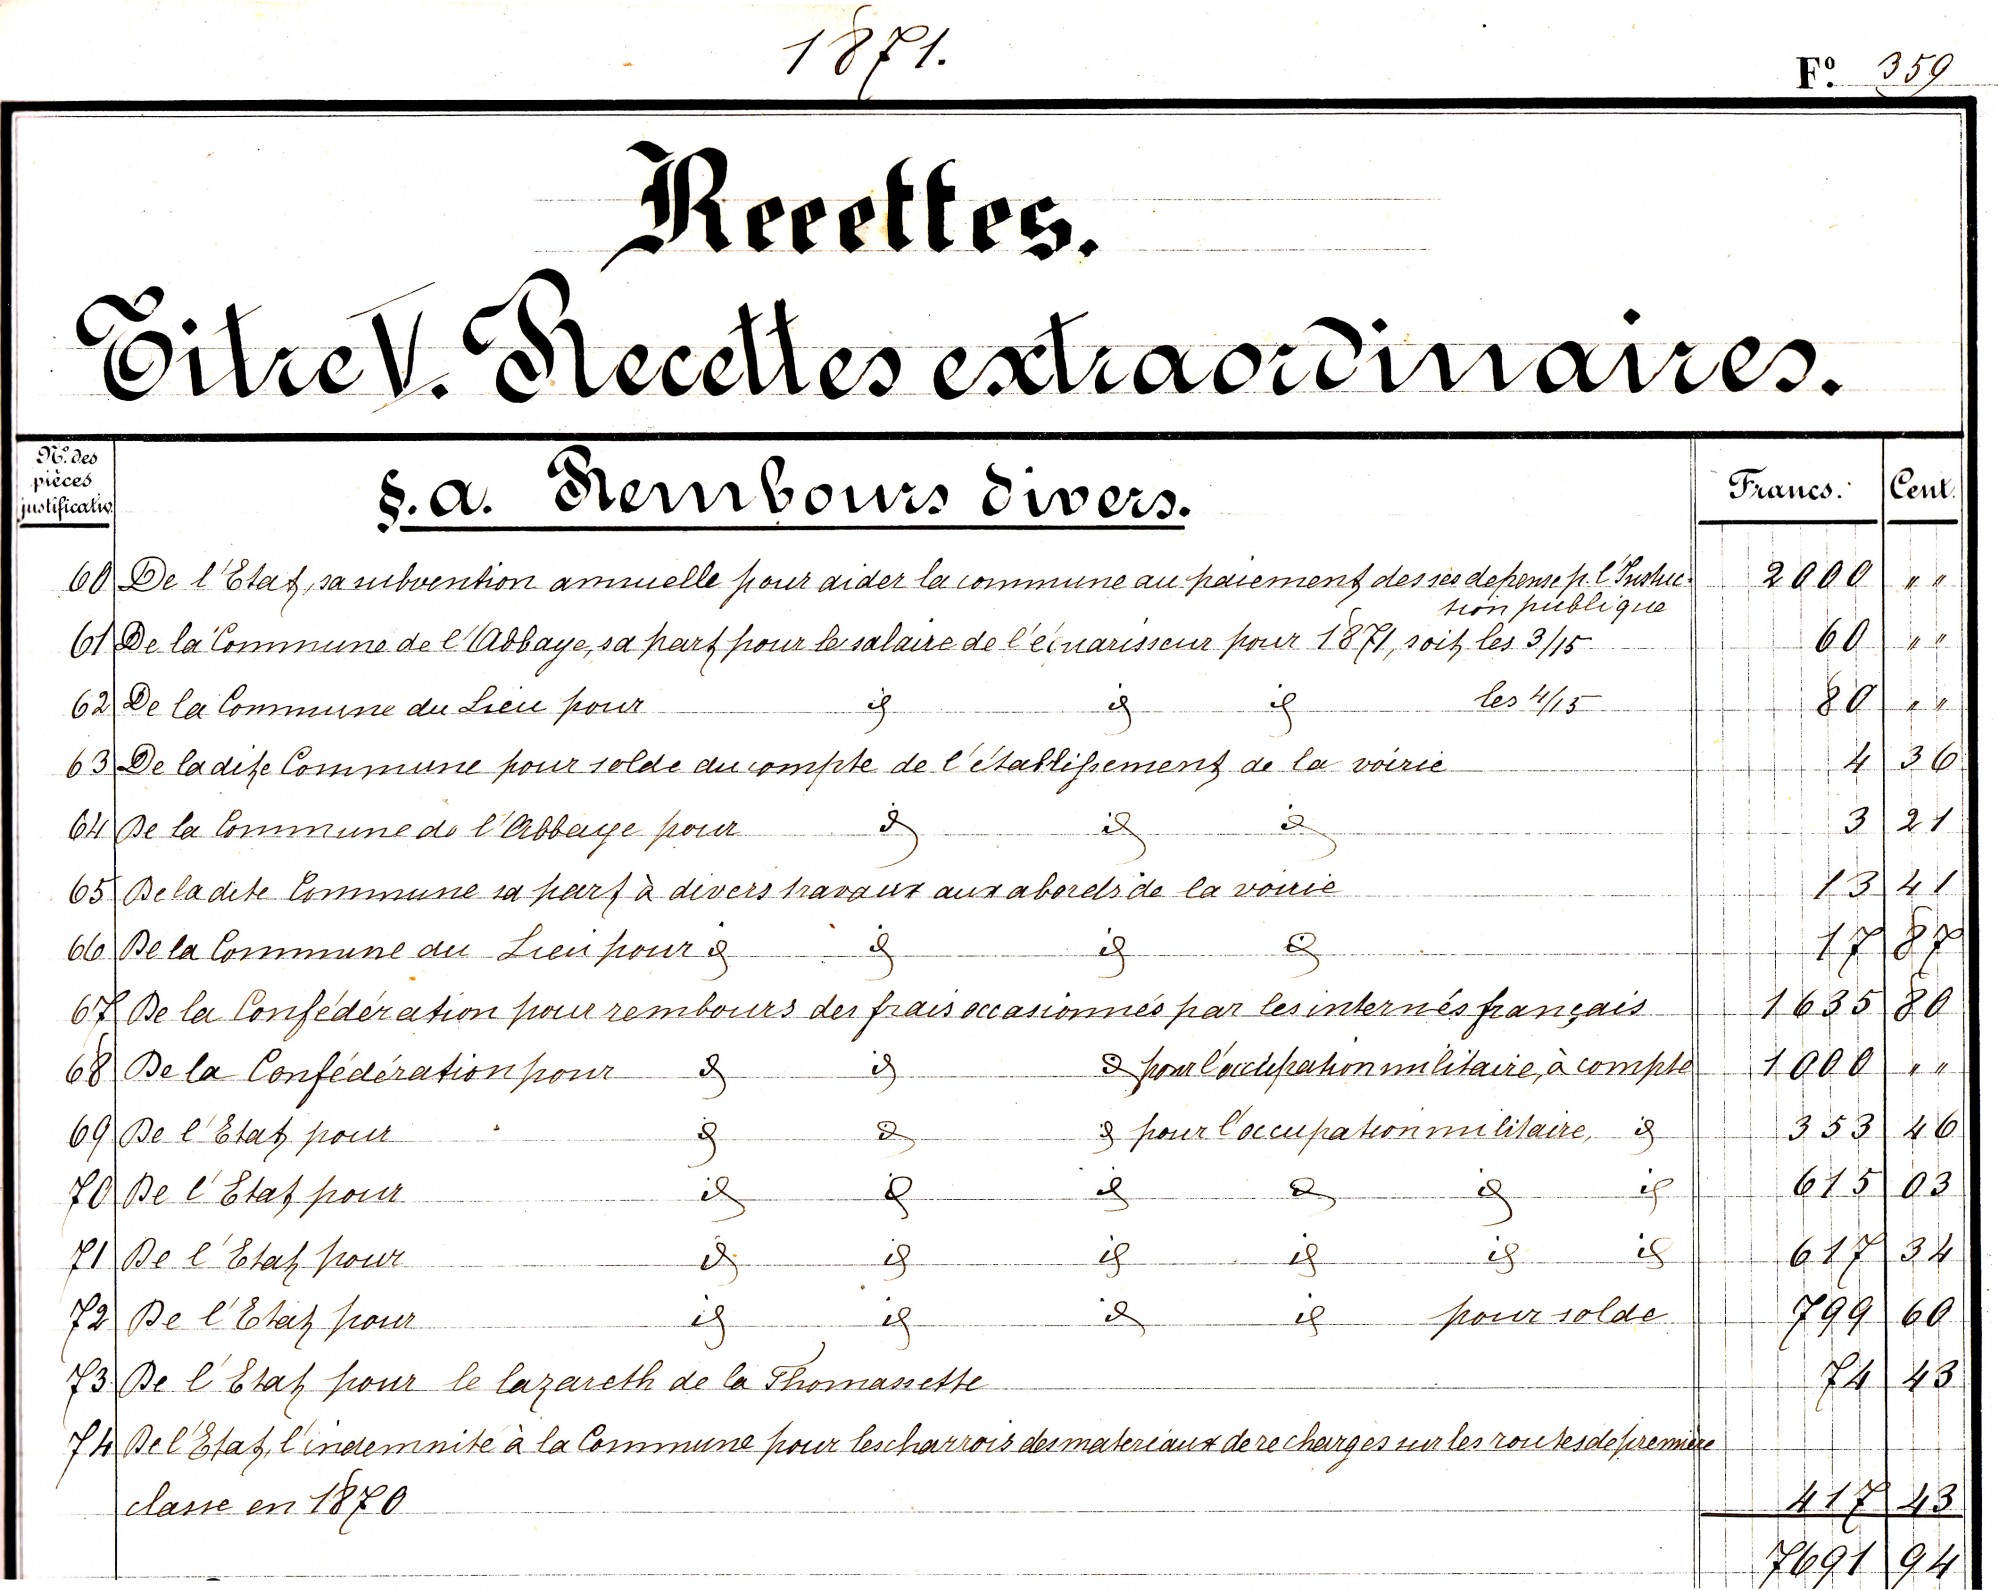 1871.
Fº. 359
Recettes.
Titre V. Recettes extraordinaires.
Nº des pièces justificativ. §. a. Rembours divers. Francs. Cent.
60 De l'Etat, sa subvention annuelle pour aider la commune au paiement des ses depense p. l'Instruc- 2000 " "
tion publique
61 De la Commune de l'Abbaye, sa part pour le salaire de l'équarisseur pour 1871, soit les 3/15 60 " "
62 De la Commune du Lieu pour id id id les 4/15 80 " "
63 De la dite Commune pour solde du compte de l'établissement de la voirie 4 36
64 De la Commune de l'Abbaye pour id id id 3 21
65 De la dite Commune sa part à divers travaux aux abords de la voirie 13 41
66 De la Commune du Lieu pour id id id id 17 87
67 De la Confédération pour rembours des frais occasionnés par les internés français 1635 80
68 De la Confédération pour id id id pour l'occupation militaire, à compte 1000 " "
69 De l'Etat pour id id id pour l'occupation militaire, id 353 46
70 De l'Etat pour id id id id id id 615 03
71 De l'Etat pour id id id id id id 617 34
72 De l'Etat pour id id id id pour solde 799 60
73 De l'Etat pour le lazareth de la Thomassette 74 43
74 De l'Etat, l'indemnité à la Commune pour les charrois des materiaux de recharges sur les routes de première
classe en 1870 417 43
7691 94